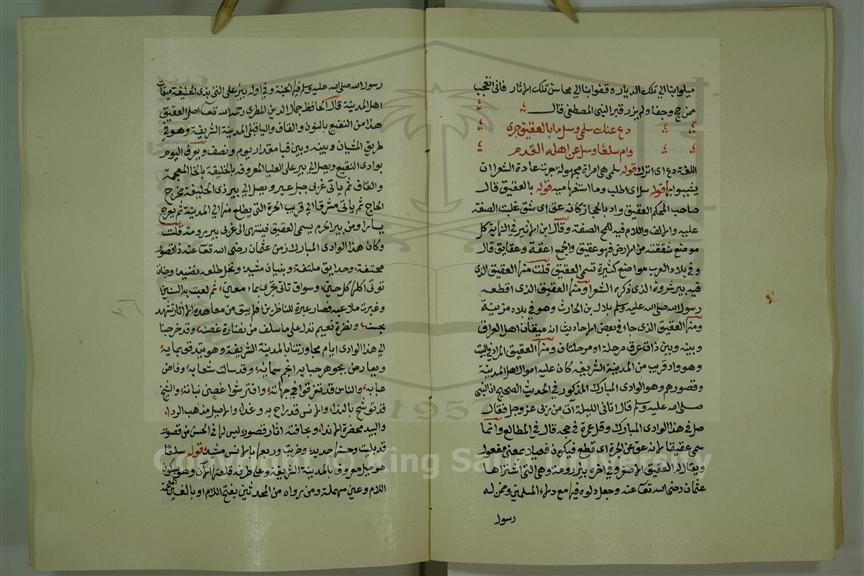 ميلوا بنا الى تلك الديار وقفوا بنا الى محاسن تلك الاثار فانى لتعجب
ممن حج وجفا ولم يزر قبر النبي المصطفى قال
دع عنك سلمى وسل ما بالعقيق جرى
وام سلعا وسل عن اهله القدم
اللغة دع اى اترك قوله سلمى هى امراة مجهولة جرت عادة الشعرا ان
يشببوا بها قوله سل اى اطلب وما استفهامية قوله بالعقيق قال
صاحب المحكم العقيق واد بالحجاز كانه عق اى شق غلبت الصفة
عليه والالف واللام فيه للمح الصفة وقال ابن الاثير فى النهاية كل
موضع شققته من الارض فهو عقيق والجمع اعقة وعقايق قال
وفى بلاد العرب مواضع كثيرة تسمى العقيق قلت منها العقيق الذى
فيه بير عروة الذى ذكره الشعرا ومنها العقيق الذى اقطعه
رسول الله صلى الله عليه وسلم بلال بن الحارث وهو فى بلاد مزينة
ومنها العقيق الذى جاء فى بعض الاحاديث انه ميقات اهل العراق
وبينه وبين ذات عرق مرحلة او مرحلتان ومنها العقيق
وهو واد قريب من المدينة الشريفة كان عليه اموال اهل المدينة
وقصورهم وهو الوادى المبارك المذكور فى الحديث الصحيح ان النبى
صلى الله عليه وسلم قال اتانى الليلة آت من ربى عز وجل فقال
صل فى هذا الوادى المبارك وقل عمرة فى حجة قال فى المطالع وانما
سمى عقيقا لانه عق عن الحرة اى قطع فيكون فعيلا بمعنى مفعول
ويقال له العقيق الاصغر وفى اخره بير رومة وهى التى اشتراها
عثمان رضى الله تعا عنه وجعل دلوه فيها مع دلاء المسلمين وممن له
رسول
رسول الله صلى الله عليه وسلم فيها الجنة وفى اوله بير على التى بذى الحليفة ميقات
اهل المدينة قال الحافظ جمال الدين المطرى رحمه الله تعا اصل العقيق
هذا من النقيع بالنون والقاف واليا قبلى المدينة الشريفة وهو فى
طريق المشيان وبينه وبين قبا مقدار يوم ونصف ويعرف اليوم
بوادى النقيع ويصل الى بير على العليا المعروف بالخليقة بالخا المعجمة
والقاف ثم ياتى غربى جبل عير ويصل الى بير ذى الحليفة مخرج
الحاج ثم ياتى مشرقا الى قريب الحرة التى يطلع منها الى المدينة ثم يعرج
يسارا ومن بير المحرم يسمى العقيق فينتهى الى غربى بير رومة قلت
وكان هذا الوادى المبارك زمن عثمان رضى الله تعا عنه ذا قصور
محتفة، وحدايق ملتفة وبنيان مشيد، ونخل طلعه نضيد، وجنان
تؤتى اكلها كل حين، وسواق تاتى تجرى بماء معين، ثم لعبت به السنين
وغيرت ملاعبه فصار عبرة للناظرين، فلم يبق من معاهده الا اثار تشهد
بحسنه، ونظرة نعيم تدل على ما سلف من نضارة غصنه، وقد خرجنا
الى هذا الوادى ايام مجاورتنا بالمدينة الشريفة وهو يتدفق بمايه
ويعارض بجوهر حبابه انجم سمايه، وقد سالت شعابه، وفاض
عبابه، والناس قد تفرقوا فى جهاته، وافترشوا غض نباته، والشيح
قد توشح بالندا، والانس قد راح به وغدا، والاصيل مذهب الردا،
والبيد مخضرة الاندا، وبحافته اثار قصور، ليس لها فى الحسن من قصور،
قد بليت وحسنها جديد، وخربت وربعها بالانس مشيد، قوله سلعا
هو جبل معروف بالمدينة الشريفة وعلى طرفه قلعتها الآن وهو بسكون
اللام وعين مهملة ومن رواه من المحدثين بفتح اللام او بالغين المعجمة
Copyright © King Saud University
1957